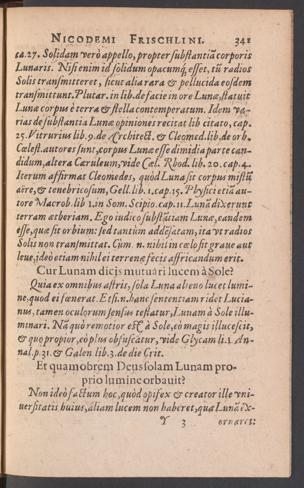 NICODEMI FRISCHLINI. 341
ca.27. Solidam verò appello, propter substantiã corporis
Lunaris. Nisi enim id solidum opacumq; esset, tũ radios
Solis transmitteret, sicut alia rara & pellucida eosdem
transmittunt. Plutar. in lib. de facie in ore Lunæ, statuit
Lunæ corpus è terra & stella contemperatum. Idem va-
rias de substantia Lunæ opiniones recitat lib citato, cap.
25. Vitruvius lib. 9. de Architect. & Cleomed. lib. de orb.
Cœlest. autores sunt, corpus Lunæ esse dimidia parte can-
didum, altera Cæruleum, vide Cæl. Rhod. lib. 20. cap. 4.
Iterum affirmat Cleomedes, quòd Luna sit corpus mistũ
aëre, & tenebricosum, Gell. lib. 1. cap. 15. Physici etiã au-
tore Macrob. lib 1. in Som. Scipio. cap. 11. Lunã dixerunt
terram ætheriam. Ego iudico substãtiam Lunæ, eandem
esse, quæ sit orbium: sed tantùm addẽsatam, ita vt radios
Solis non transmittat. Cùm n. nihil in cœlo sit graue aut
leue, ideò etiam nihil è terrenę fęcis affricandum erit.
Cur Lunam dicis mutuari lucem à Sole?
Quia ex omnibus astris, sola Luna alieno lucet lumi-
ne. quod ei fœnerat. Etsi. n. hãc sententiam ridet Lucia-
nus, tamen oculorum sensus testatur, Lunam à Sole illu-
minari. Nã quò remotior est à Sole, eò magis illucescit,
& quo propior, eò plus obfuscatur, vide Glycam li. 1. An-
nal. p. 31. & Galen lib. 3. de die Crit.
Et quam obrem Deus solam Lunam pro-
prio lumine orbauit?
Non ideò factum hoc, quòd opifex & creator ille vni-
uersitatis huius, aliam lucem non haberet, qua Lunã ex-
Y 3 ornaret: